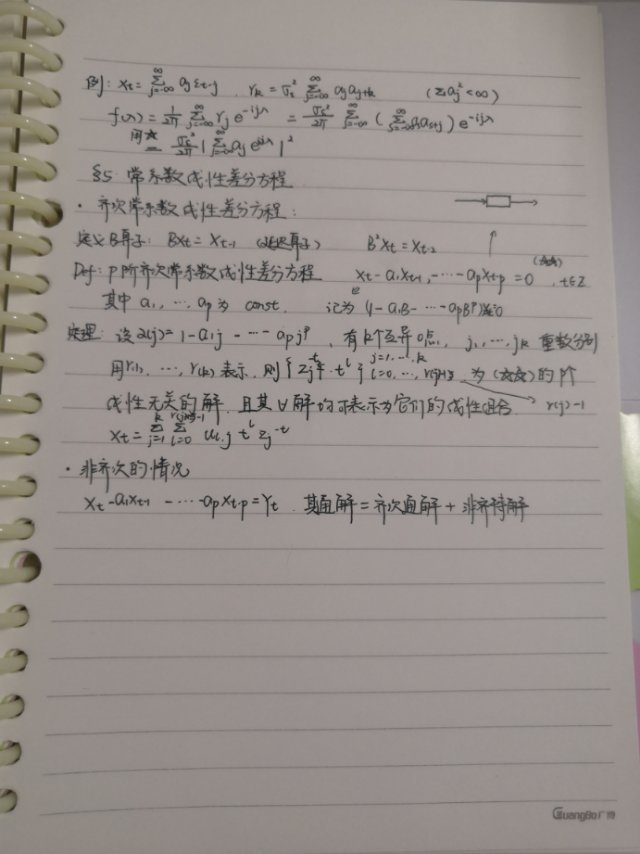 例: Xt = Σ_{j=-∞}^{∞} aj εt-j , rk = σε² Σ_{j=-∞}^{∞} aj aj+k (Σaj²<∞)
f(λ) = 1/2π Σ_{j=-∞}^{∞} rj e^{-ijλ} = σε²/2π Σ_{j=-∞}^{∞} ( Σ_{s=-∞}^{∞} as as+j ) e^{-ijλ}
用☆ = σε²/2π | Σ_{j=-∞}^{∞} aj e^{ijλ} |²
§5. 常系数线性差分方程
· 齐次常系数线性差分方程:
定义B算子: BXt = Xt-1 (延迟算子) B²Xt = Xt-2
Def: P阶齐次常系数线性差分方程 Xt - a1Xt-1 - ··· - apXt-p = 0 (☆☆) , t∈Z
其中 a1, ···, ap 为 const. 记为 (1 - a1B - ··· - apB^p)Xt = 0
定理: 设 a(j) = 1 - a1j - ··· - apj^p , 有k个互异0点, j1, ···, jk 重数分别
用r(1), ···, r(k) 表示, 则{ Zj^{-t} · t^l } j=1,···,k l=0,···,r(j)-1 为(☆☆)的P个
线性无关的解, 且其∀解均可表示为它们的线性组合. r(j)-1
Xt = Σ_{j=1}^{k} Σ_{l=0}^{r(j)-1} Ul,j t^l Zj^{-t}
· 非齐次的情况
Xt - a1Xt-1 - ··· - apXt-p = Yt . 其通解 = 齐次通解 + 非齐特解
GuangBo广博